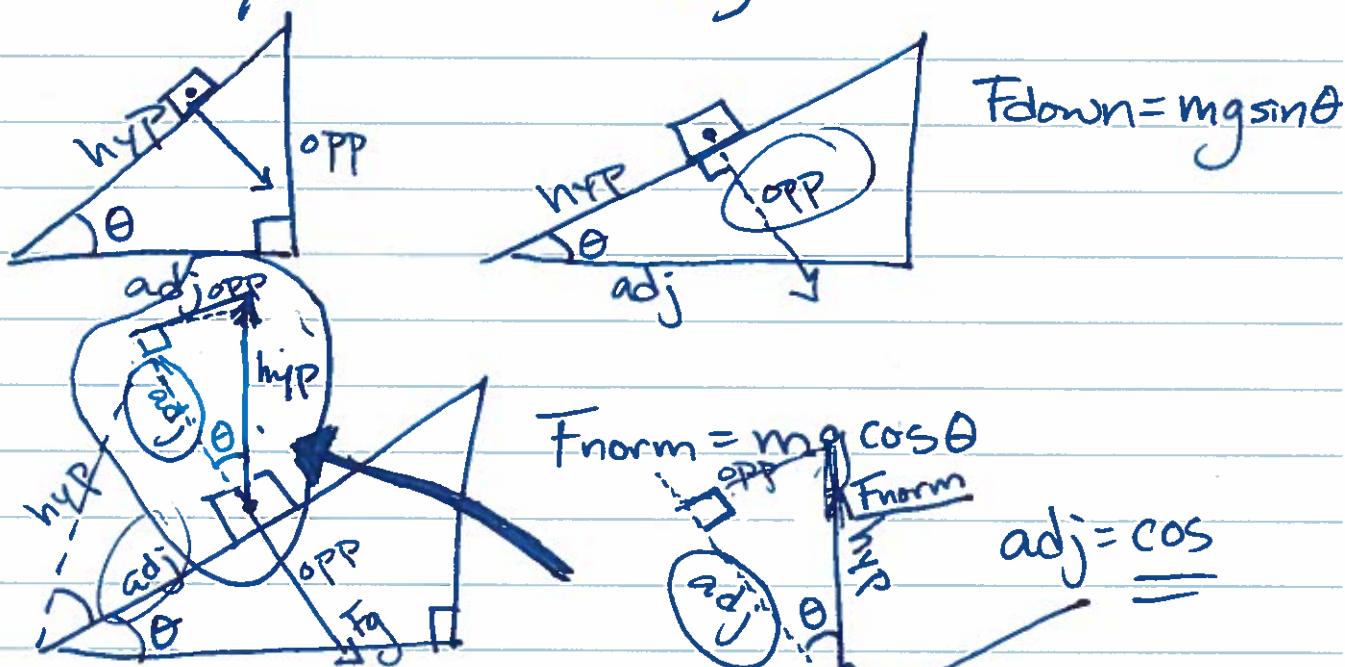 hyp
opp
θ
adj
hyp
opp
θ
adj
Fdown=mgsinθ
opp
hyp
adj
θ
hyp
adj
opp
θ
Fg
Fnorm = mg cosθ
opp
Fnorm
hyp
adj
θ
adj=cos